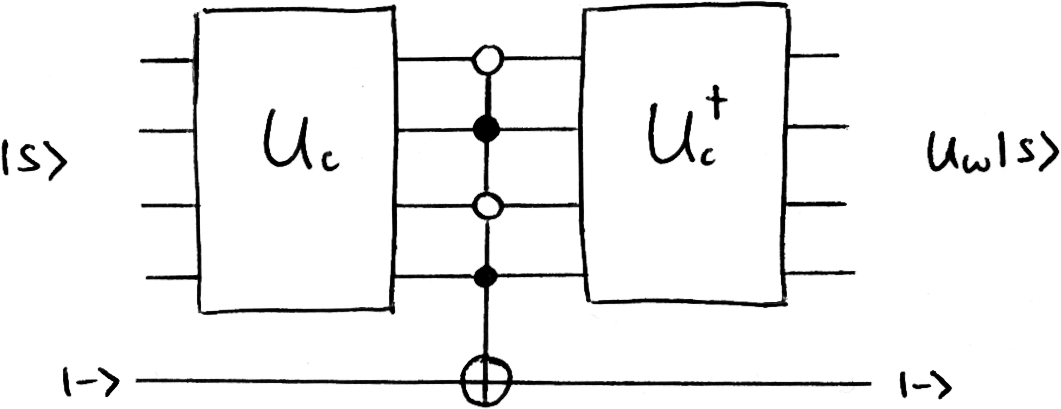 |S⟩ U_c U_c^† U_w|S⟩
|−⟩ |−⟩